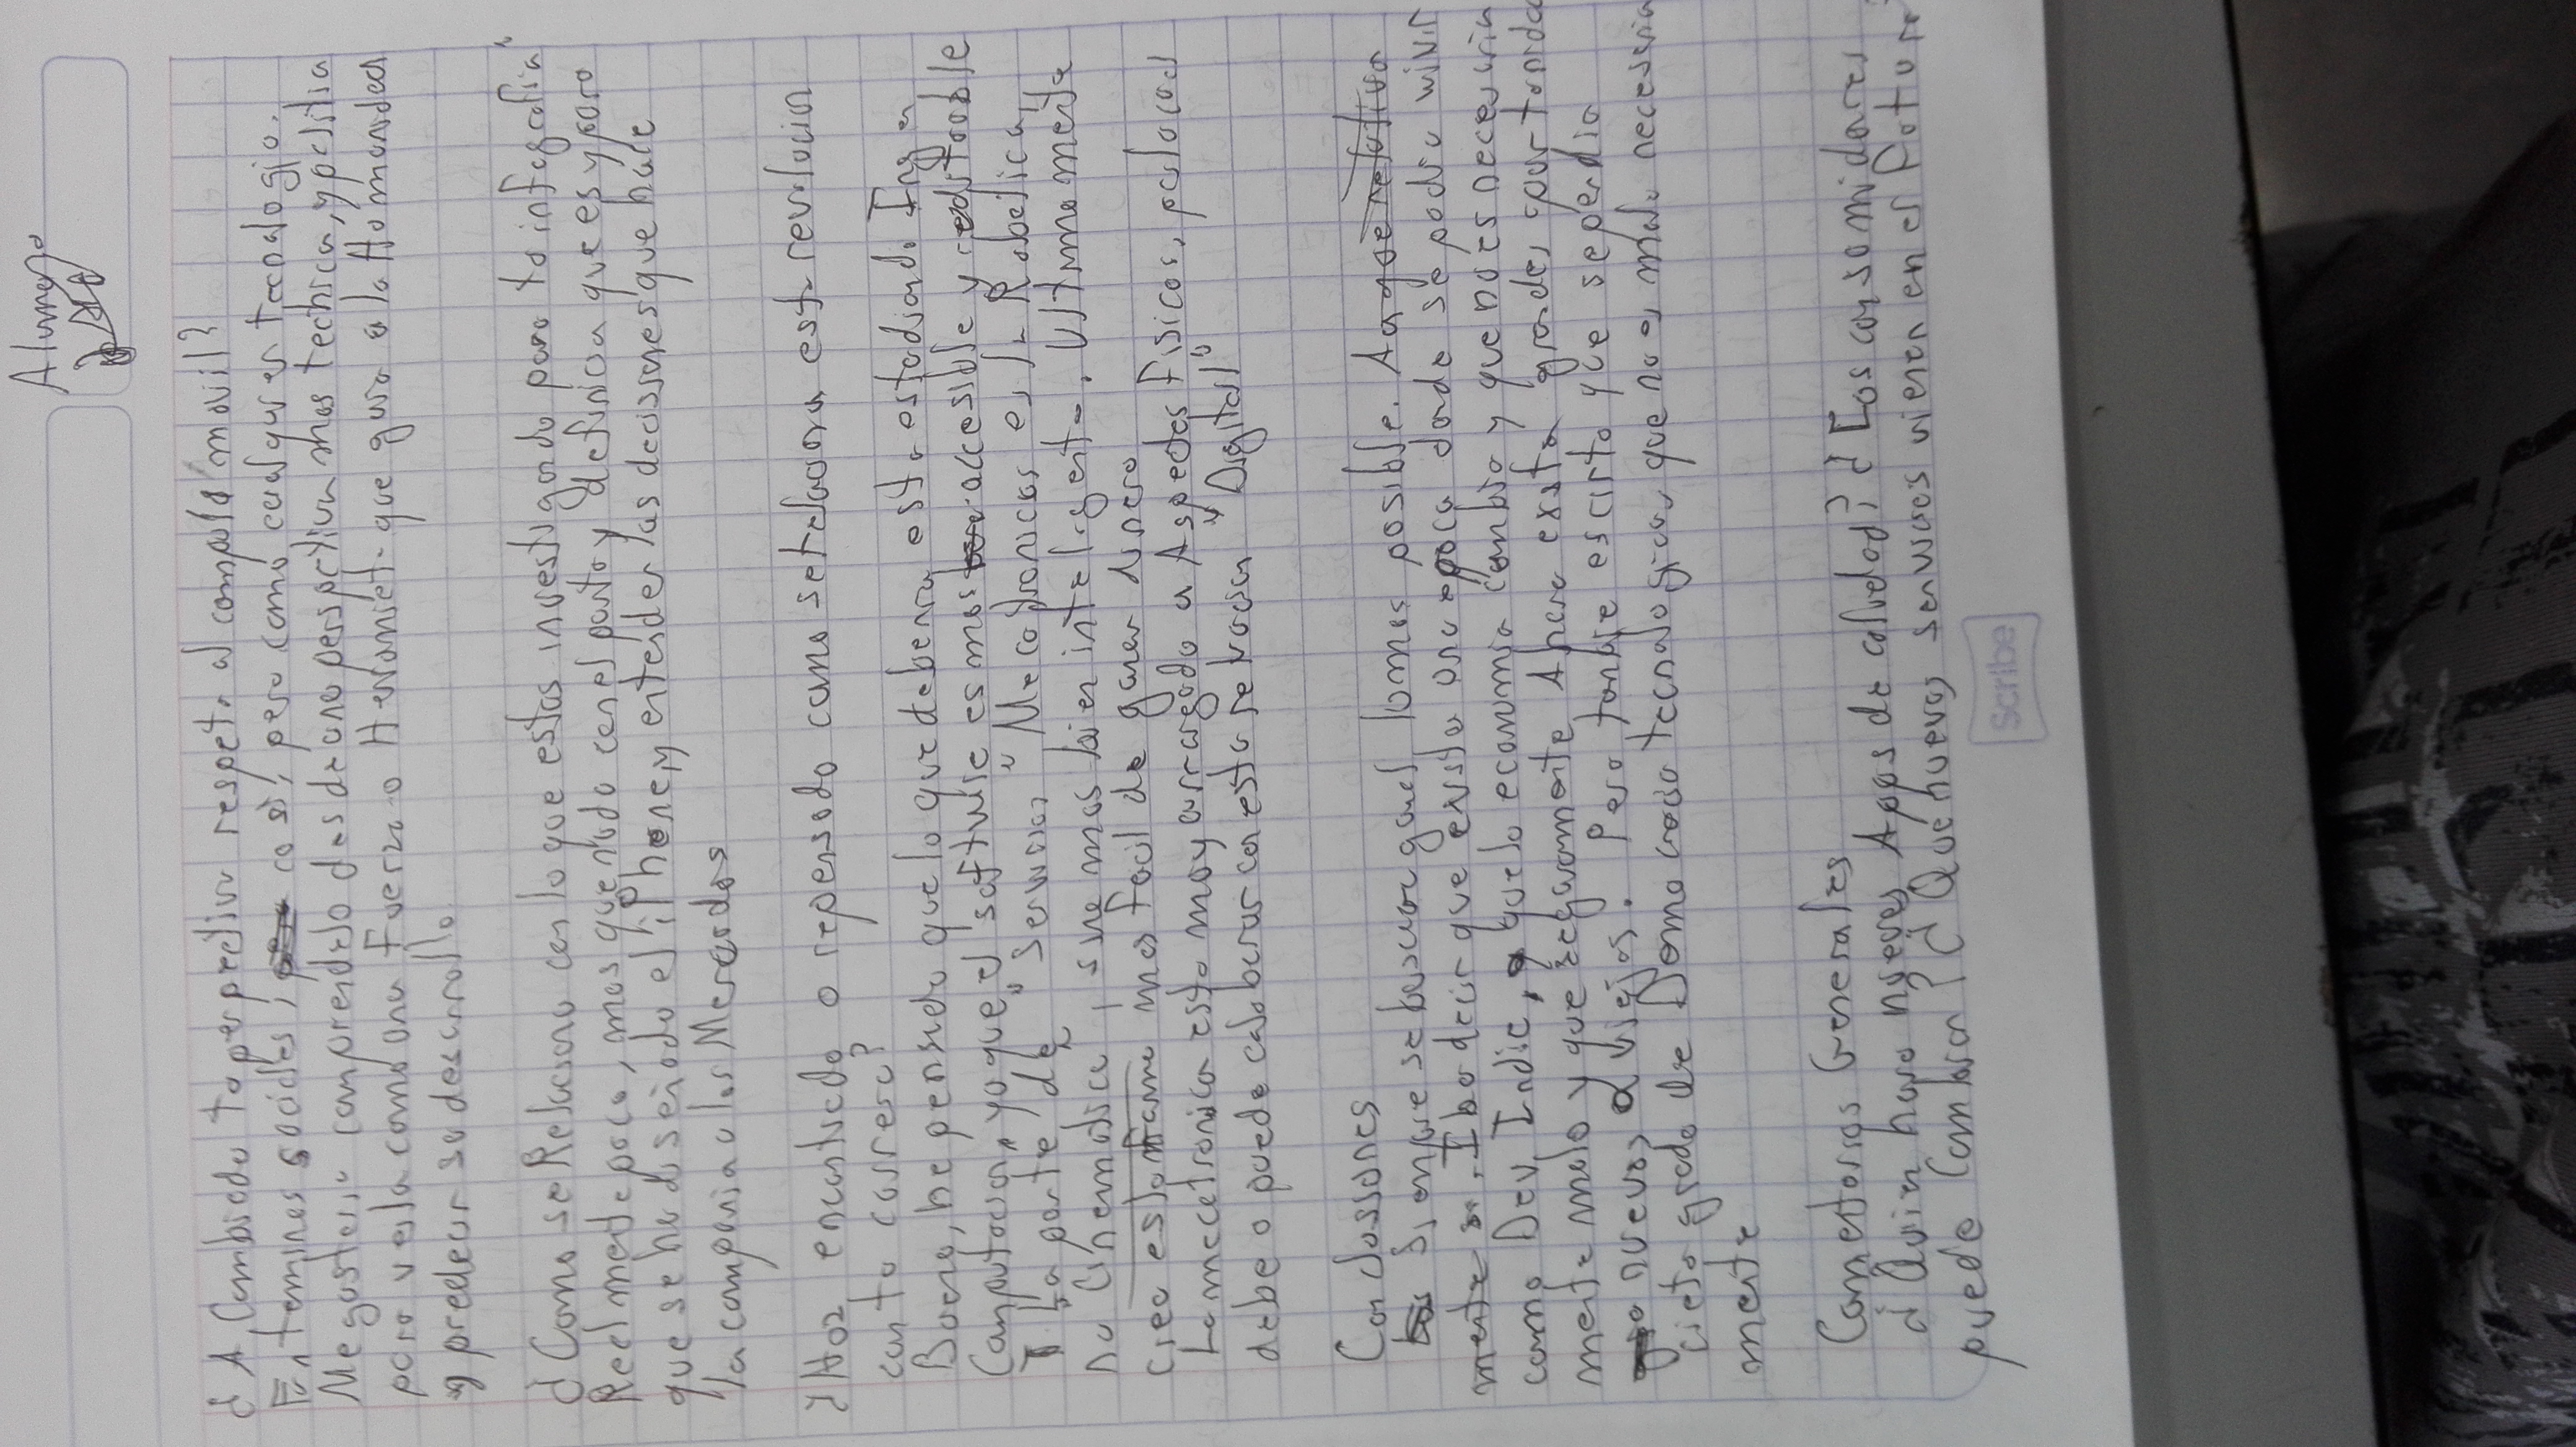 Alumno
¿A Cambiado tu perpretiva respeto al compula movil?
En temines sociales, co si, pero como cualquier Tecnologio.
Me gustario comprendelo desde una perspectiva mas technica, y politia
para verla como una Fuerza o Herramiet que guia a la Humanidad
y predecir su desarrollo.
¿Como se Relaciona con lo que estas investigando para tu infografia"
Reelmente poco, mas que nado con el parto y definica que es y para
que se ha diseñado el iPhone y entender las decissiones que hace
la compania a los Mercados
¿Haz encontrado o repensado como se relaciona esta revolucion
con tu carrera?
Bueno, he pensado que lo que deberia esta estudiando Ing en
Computacion, ya que el software es mas accesible y redituable
"La parte de" servisios "Mecatronicas es la Robotica,
no Cinematica, sine mas bien inteligente. Ultimamente
creo esta mas facil de ganar dinero
La mecatronica esta muy arraigada a Aspectos Fisicos, por lo cual
debe o puede colaborar con esta relvocion "Digital"
Conclussiones
Siempre se busca ganel lo mas posible.
Iba decir que existio una epoca donde se podia vivir
como Dev Indie, y que lo economia cambio y que no es necesaria
mente malo y que seguramente Ahora exista grandes oportunida
nuevos a viejos. Pero tambie es cirto que se perdio
cieto grado de Democracia tecnologica, que no es malo necesaria
mente
Comentarios Generales
¿Quien hara nuevas Apps de calidad? ¿Los consomidores
puede Cambiar? ¿Que nuevos servicios vienen en el Foturo?
Scribe